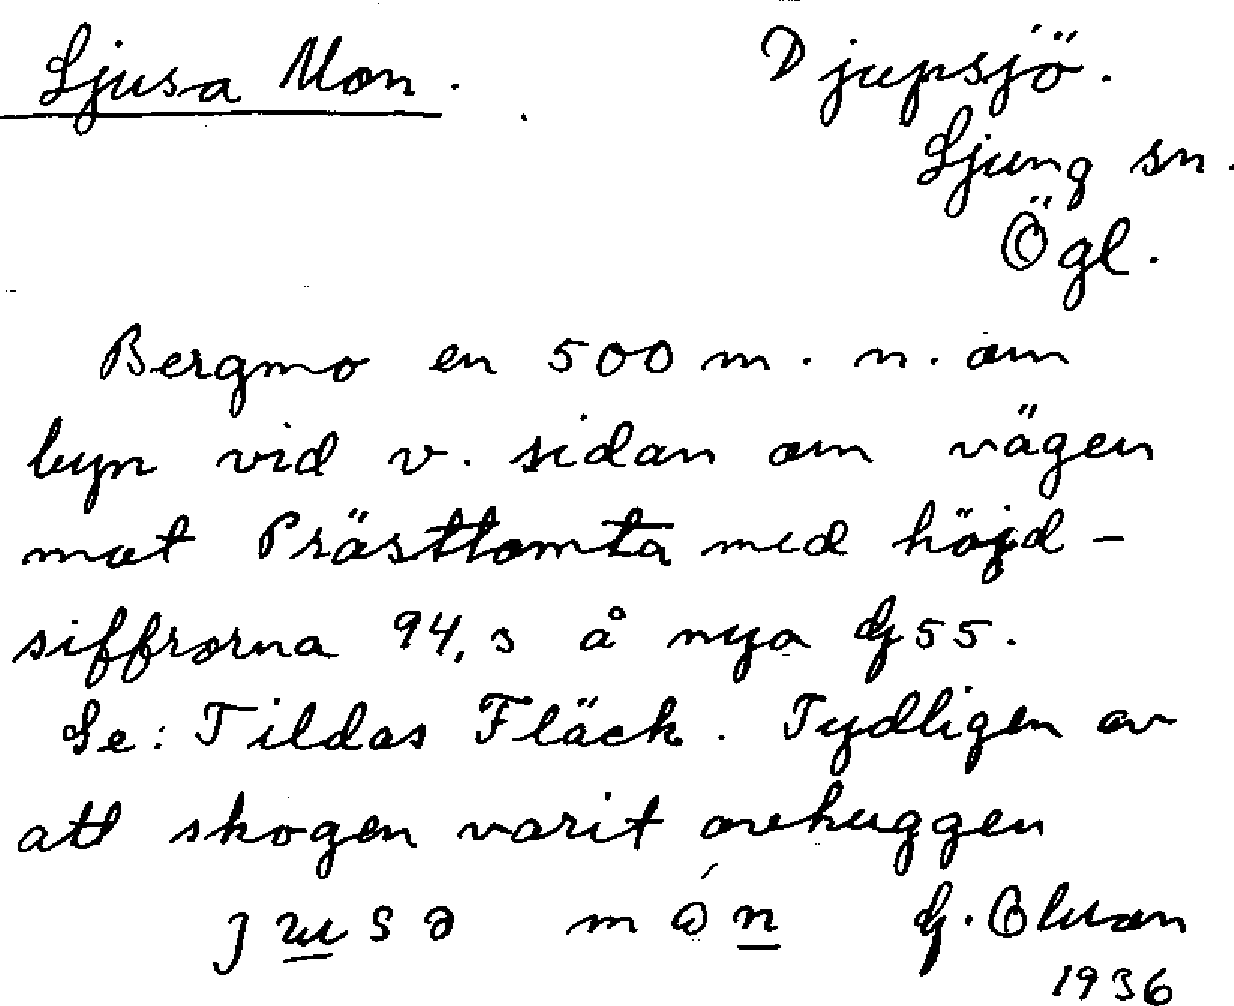 Ljusa Mon. Djupsjö.
Ljung sn.
Ögl.
Bergmo en 500 m. n. om
byn vid v. sidan om vägen
mot Prästtomta med höjd-
siffrorna 94,3 å nya G 55.
Se: Tildas Fläck. Tydligen av
att skogen varit avhuggen
G. Olsson
1936